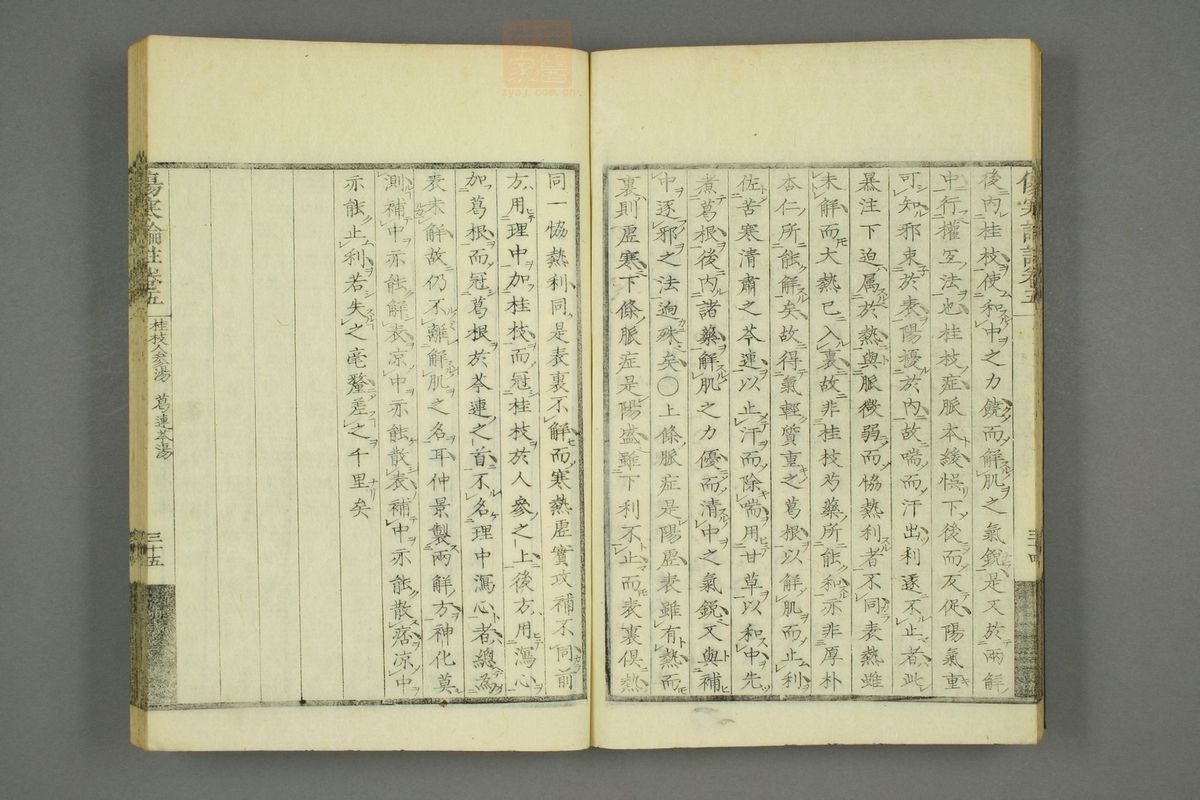 後內桂枝使和中之力饒而解肌之氣銳是又於兩解
中行權宜法也桂枝症脈本緩悞下後而反促陽氣重
可知邪束於表陽擾於內故喘而汗出利遂不止者此
暴注下迫属於熱與脈微弱而恊熱利者不同表熱雖
未解而大熱已入裏故非桂枝芍藥所能和亦非厚朴
杏仁所能解矣故得氣輕質重之葛根以解肌而止利
佐苦寒清肅之芩連以止汗而除喘用甘草以和中先
煮葛根後內諸藥解肌之力優而清中之氣銳又與補
中逐邪之法逈殊矣○上條脈症是陽虛表雖有熱而
裏則虛寒下條脈症是陽盛雖下利不止而表裏俱熱
傷寒論註卷五
桂枝人參湯 葛連芩湯
三十五
同一恊熱利同是表裏不解而寒熱虛實攻補不同前
方用理中加桂枝而冠桂枝於人參之上後方用瀉心
加葛根而冠葛根於芩連之首不名理中瀉心者總為
表未解故仍不離解肌之名耳仲景製兩解方神化莫
測補中亦能解表凉中亦能散表補中亦能散痞凉中
亦能止利若失之毫釐差之千里矣
zysj.com.cn